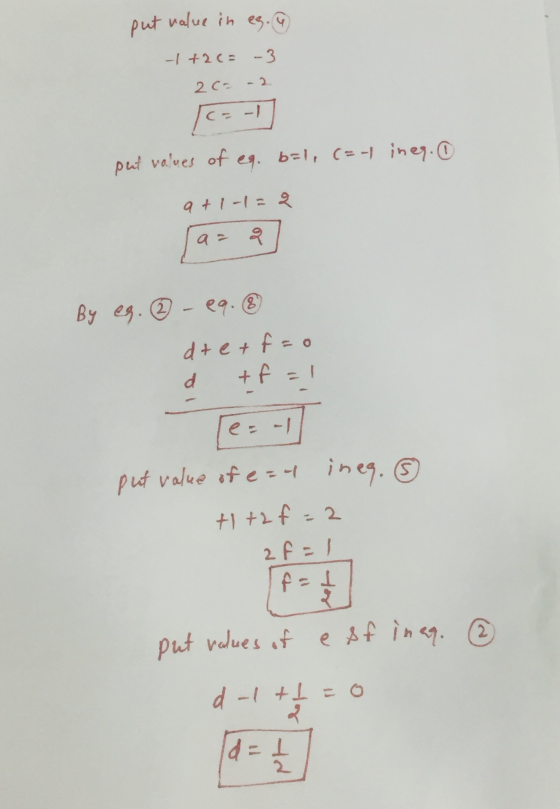 put value in eq. ④
-1 + 2c = -3
2c = -2
c = -1
put values of eq. b=1, c=-1 in eq. ①
a + 1 - 1 = 2
a = 2
By eq. ② - eq. ⑧
d + e + f = 0
d + f = 1
- - -
e = -1
put value of e = -1 in eq. ⑤
+1 + 2f = 2
2f = 1
f = 1/2
put values of e & f in eq. ②
d - 1 + 1/2 = 0
d = 1/2